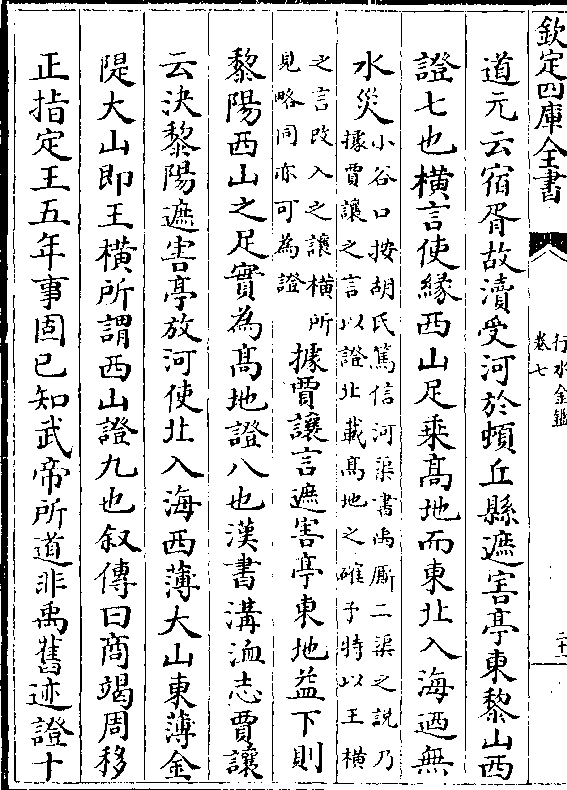 欽定四庫全書
行水金鑑
卷七
道元云宿胥故瀆受河於頓丘縣遮害亭東黎山西
證七也橫言使緣西山足乗髙地而東北入海廼無
水災
小谷口按胡氏篤信河渠書禹厮二渠之說乃
據賈讓之言以證北載髙地之確予特以王橫
之言改入之讓橫所
見略同亦可為證
據賈讓言遮害亭東地益下則
黎陽西山之足實為髙地證八也漢書溝洫志賈讓
云決黎陽遮害亭放河使北入海西薄大山東薄金
隄大山即王橫所謂西山證九也叙傳曰商竭周移
正指定王五年事固已知武帝所道非禹舊迹證十